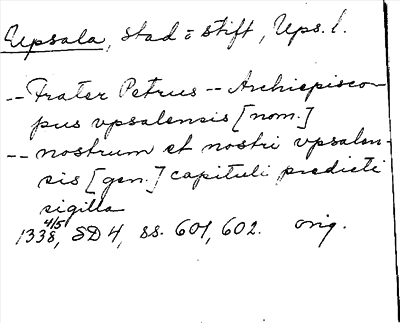 Upsala, stad o stift, Ups. l.
-- Frater Petrus -- Archiepisco-
pus vpsalensis [nom.]
-- nostrum et nostri vpsalen-
sis [gen.] capituli predicti
sigilla
1338 4/5, SD 4, ss. 601, 602. orig.